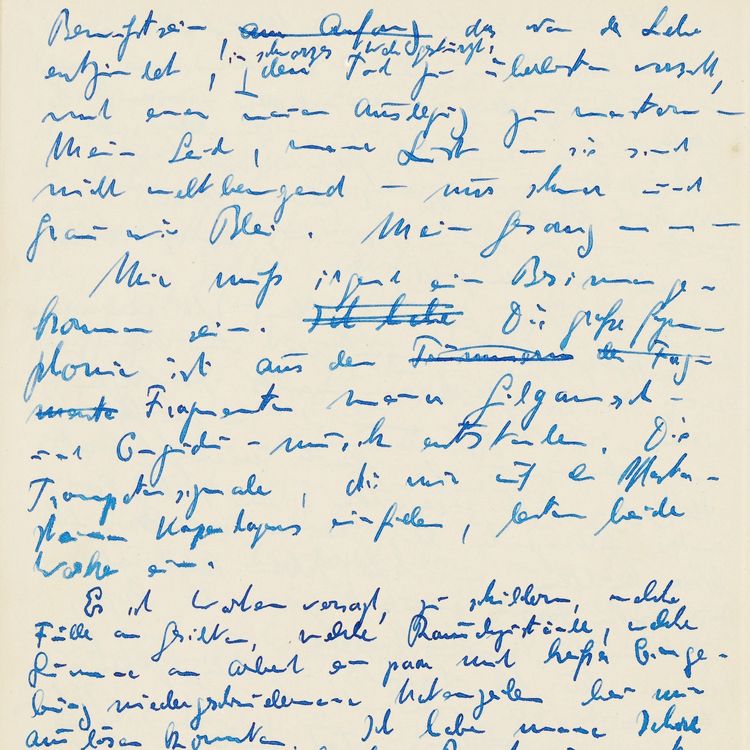 Bewußtsein am Anfang das von der Liebe
entzündet, dem Tod zu überlisten versucht,
mit einer neuen Auslegung zu meistern —
Mein Leid, meine Lust — sie sind
nicht weltbewegend — nur schwer und
grau wie Blei. Mein Gesang — — —
Mir muß irgend ein Besinnen ge-
kommen sein. Ich habe Die große Sym-
phonie ist aus den Trümmern der Frag-
mente Fragmenten meiner Gilgamesch-
und Engidu-musik entstanden. Die
Trompetensignale, die mir auf den Pflaster-
steinen Kopenhagens einfielen, leiten beide
Werke ein.
Es ist Worten versagt, zu schildern, welche
Fülle an Gesichten, welche Rauschzustände, welche
Summe an Arbeit ein paar mit heißer Einge-
bung niedergeschriebene Notenzeilen bei mir
auslösen konnten. Ich habe meine